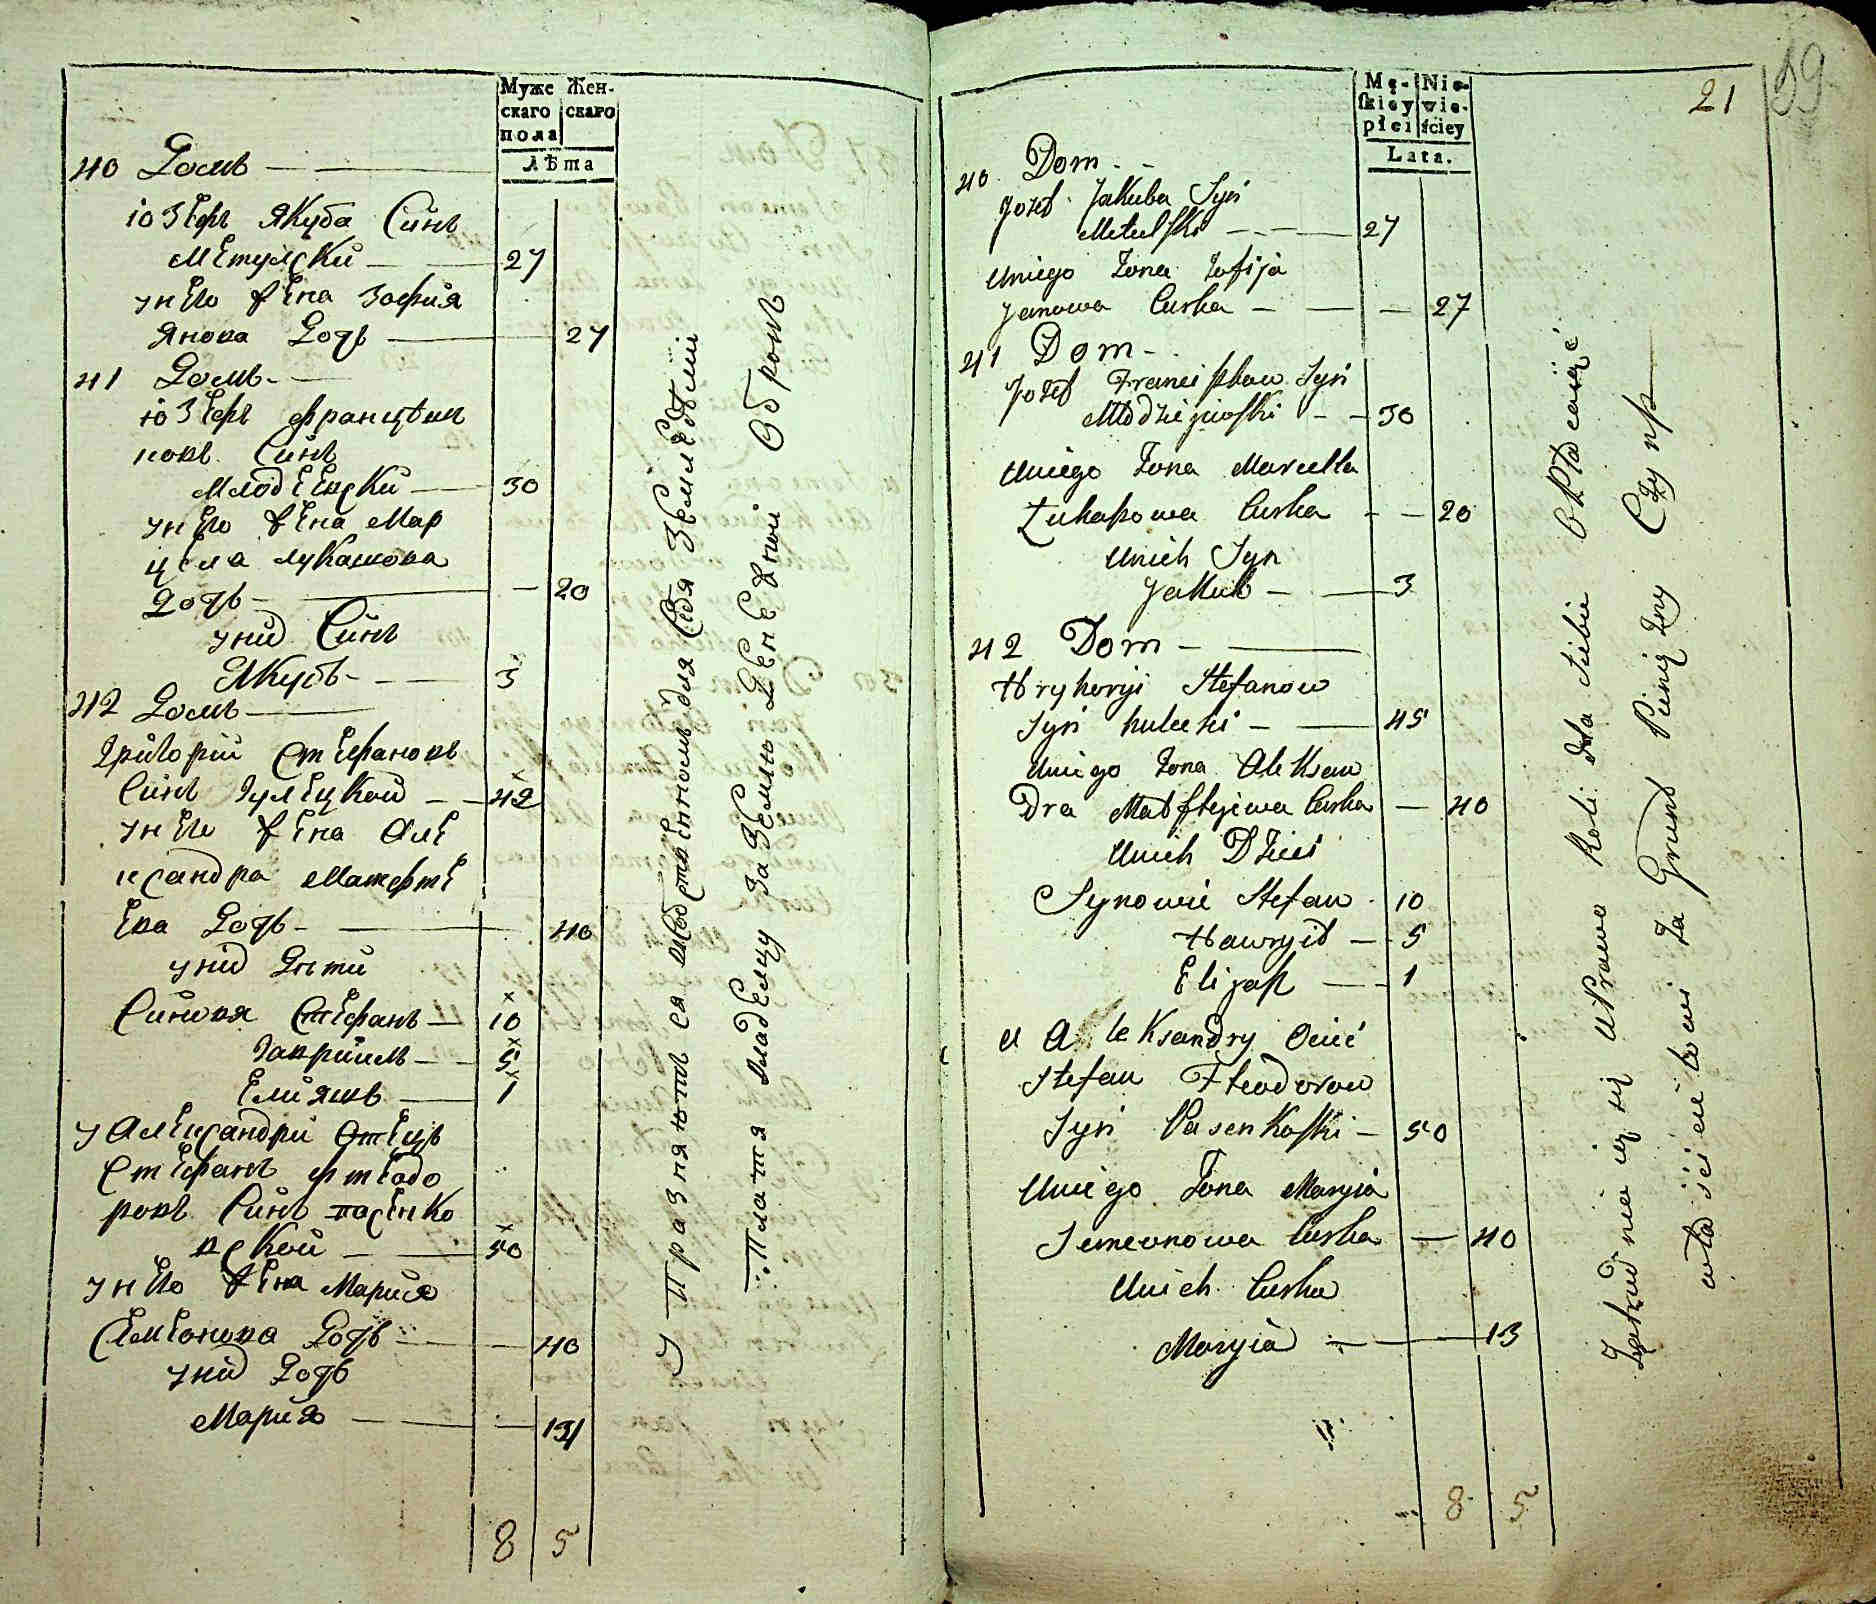 Муже Жен-
скаго скаго
пола
лѣта
40 Домъ
Юзефъ Якуба Синъ
Метулски 27
унего жена Зофия
Янова Дочь 27
41 Домъ
Юзефъ францѣшк
новъ Синъ
Млодѣевски 30
унего жена Мар
цела Лукашова
Дочь 20
унихъ Синъ
Якубъ 3
42 Домъ
Григорий Стефановъ
Синъ Гулецкой 42
унего жена Але
ксандра Матефте
ева Дочь 40
унихъ Дѣти
Синовя Стефанъ 10
Гавриилъ 5
Елияшъ 1
у Александри Отецъ
Стефанъ фтеодо
ровъ Синъ пасенко
вской 50
унего жена Мария
Семионова Дочь 40
унихъ Дочь
Мария 13
8 5
Упразняютъ ся для себя Землѣдѣлі
Платя владелцу За Землю Денежной Оброкъ
59
21
Mę- Nie-
skiey wie-
płci ściey
Lata.
40 Dom
Jozef Jakuba Syn
Metulski 27
Uniego Zona Zofija
Janowa Curka 27
41 Dom
Jozef Franciszkow Syn
Młodziejewski 30
Uniego Zona Marcella
Łukaszowa Curka 20
Unich Syn
Jakub 3
42 Dom
Hryhoryi Stefanow
Syn hulecki 45
Uniego Zona Aleksan
Dra Matftejiwa Curka 40
Unich Dzieci
Synowie Stefan 10
Hawryił 5
Elijasz 1
U Aleksandry Ociec
Stefan Fteodorow
Syn Pasenkoski 50
Uniego Zona Maryia
Semeonowa Curka 40
Unich Curka
Maryia 13
8 5
Zatrudnia ią się uPrawa Roli dla siebie OPłacaiąć
właścicielowi Za Grunt Pieniężny Czynsz